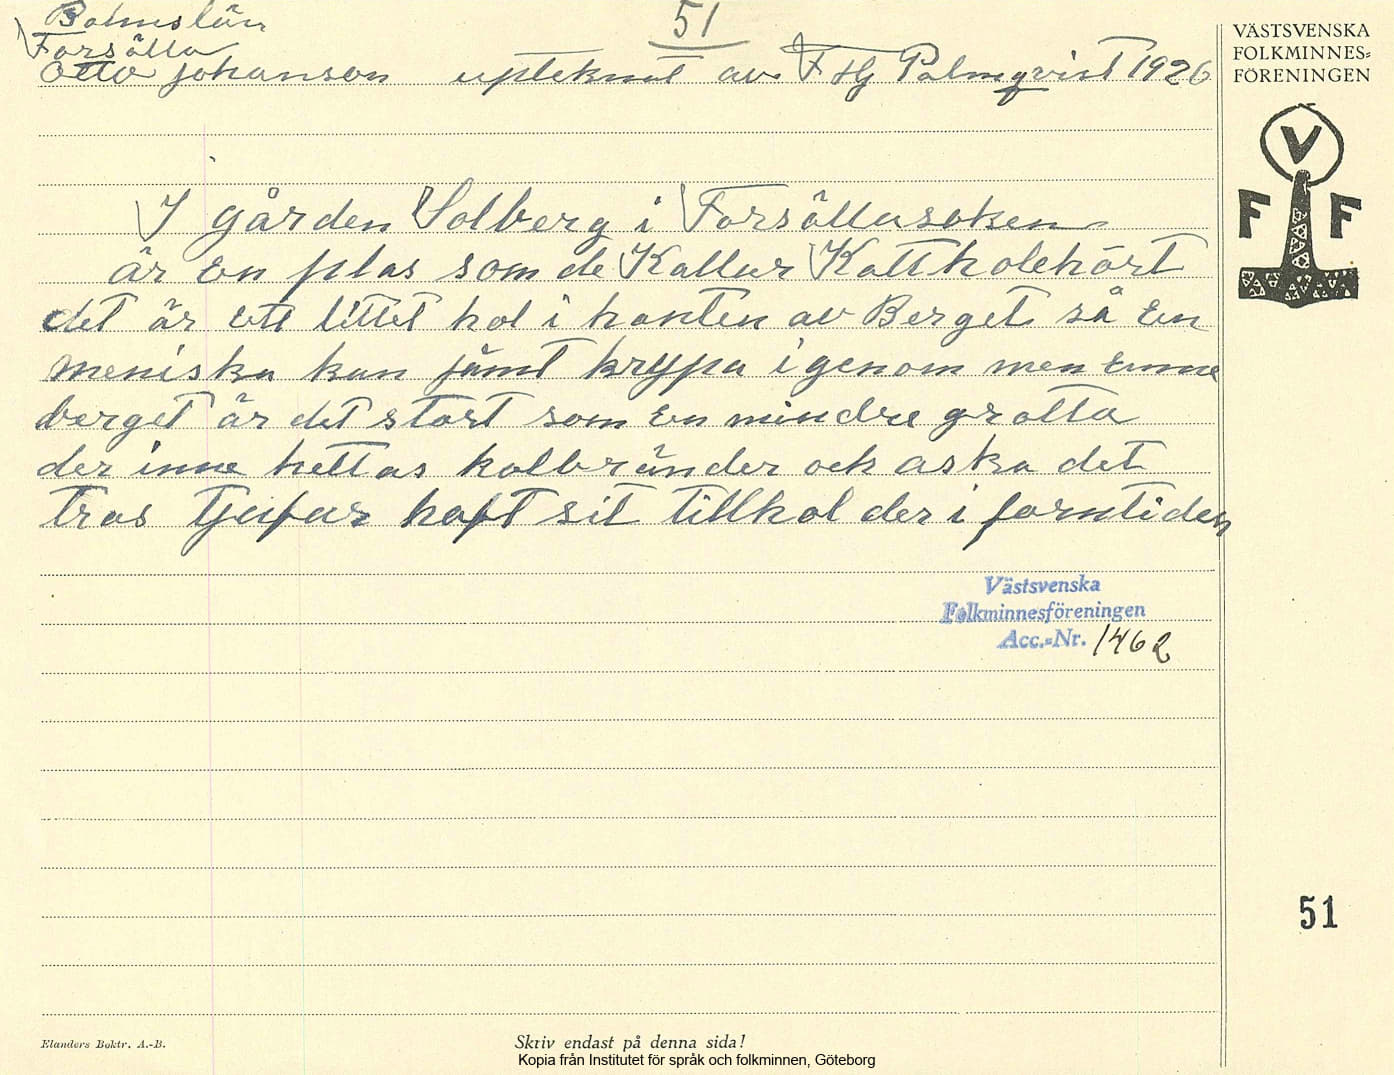 Bohuslän
51
Forsälla
Otto Johanson upteknat av F Hj Palmqvist 1926
VÄSTSVENSKA
FOLKMINNES=
FÖRENINGEN
V
F F
I gården Solberg i Forsällasoken
är en plas som de Kallar Kattholehört
det är ett littet hol i kanten av Berget så en
meniska kan jämt krypa igenom men inne
berget är det stort som en mindre grotta
der inne hittas kolbränder och aska det
tros tjufar haft sit tillhol der i forntiden
Västsvenska
Folkminnesföreningen
Acc.=Nr. 1462
51
Elanders Boktr. A.-B.
Skriv endast på denna sida!
Kopia från Institutet för språk och folkminnen, Göteborg